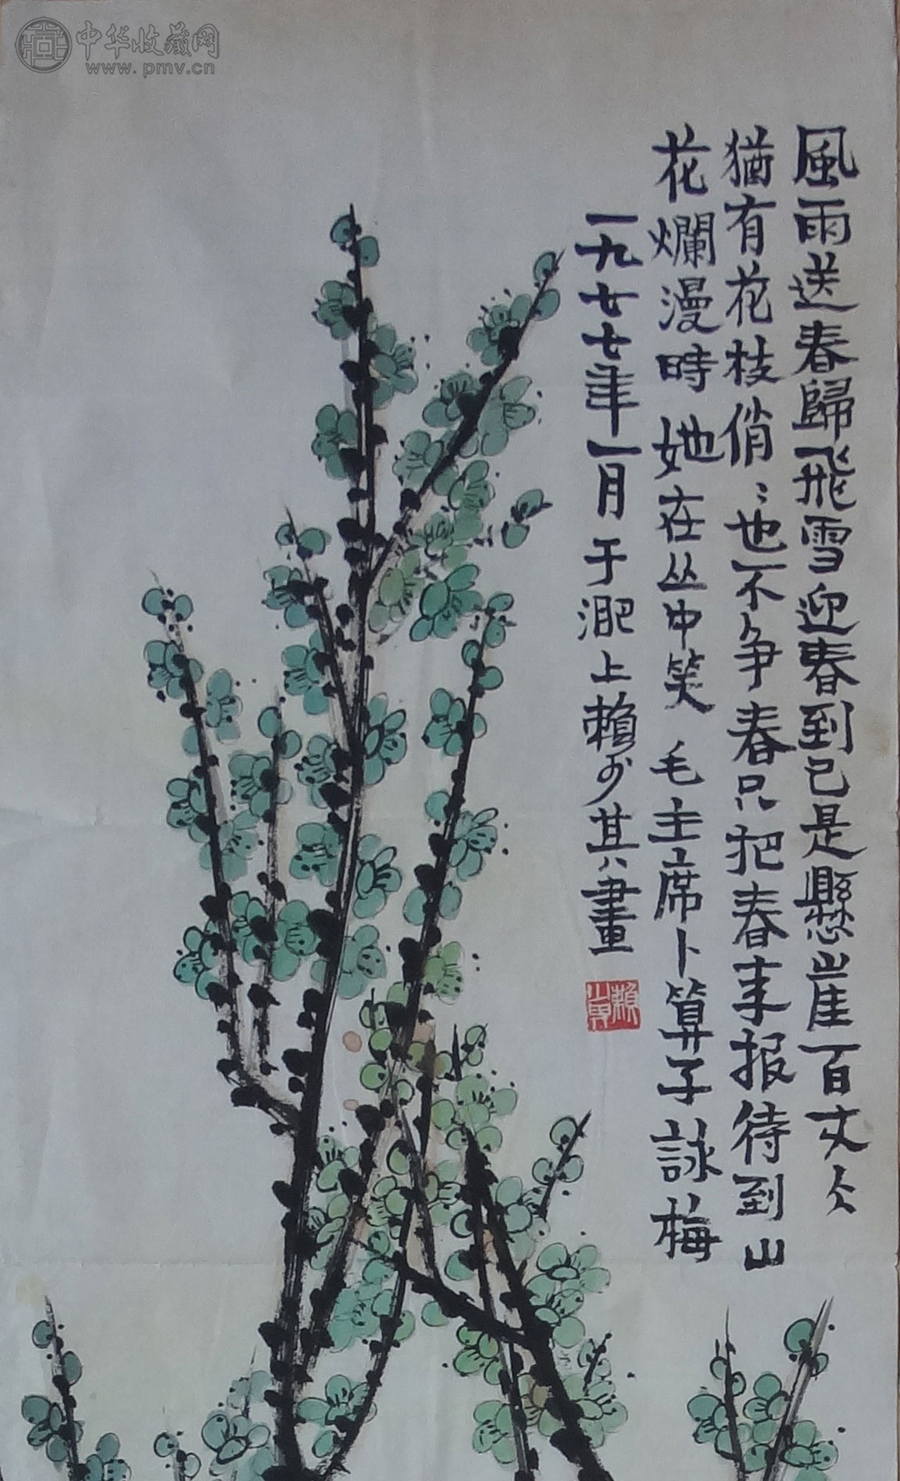 中华收藏网
www.pmv.cn
風雨送春歸飛雪迎春到已是懸崖百丈仌
猶有花枝俏〻也不争春只把春来报待到山
花爛漫時她在丛中笑 毛主席卜算子詠梅
一九七七年一月于淝上賴少其八畫
賴少其